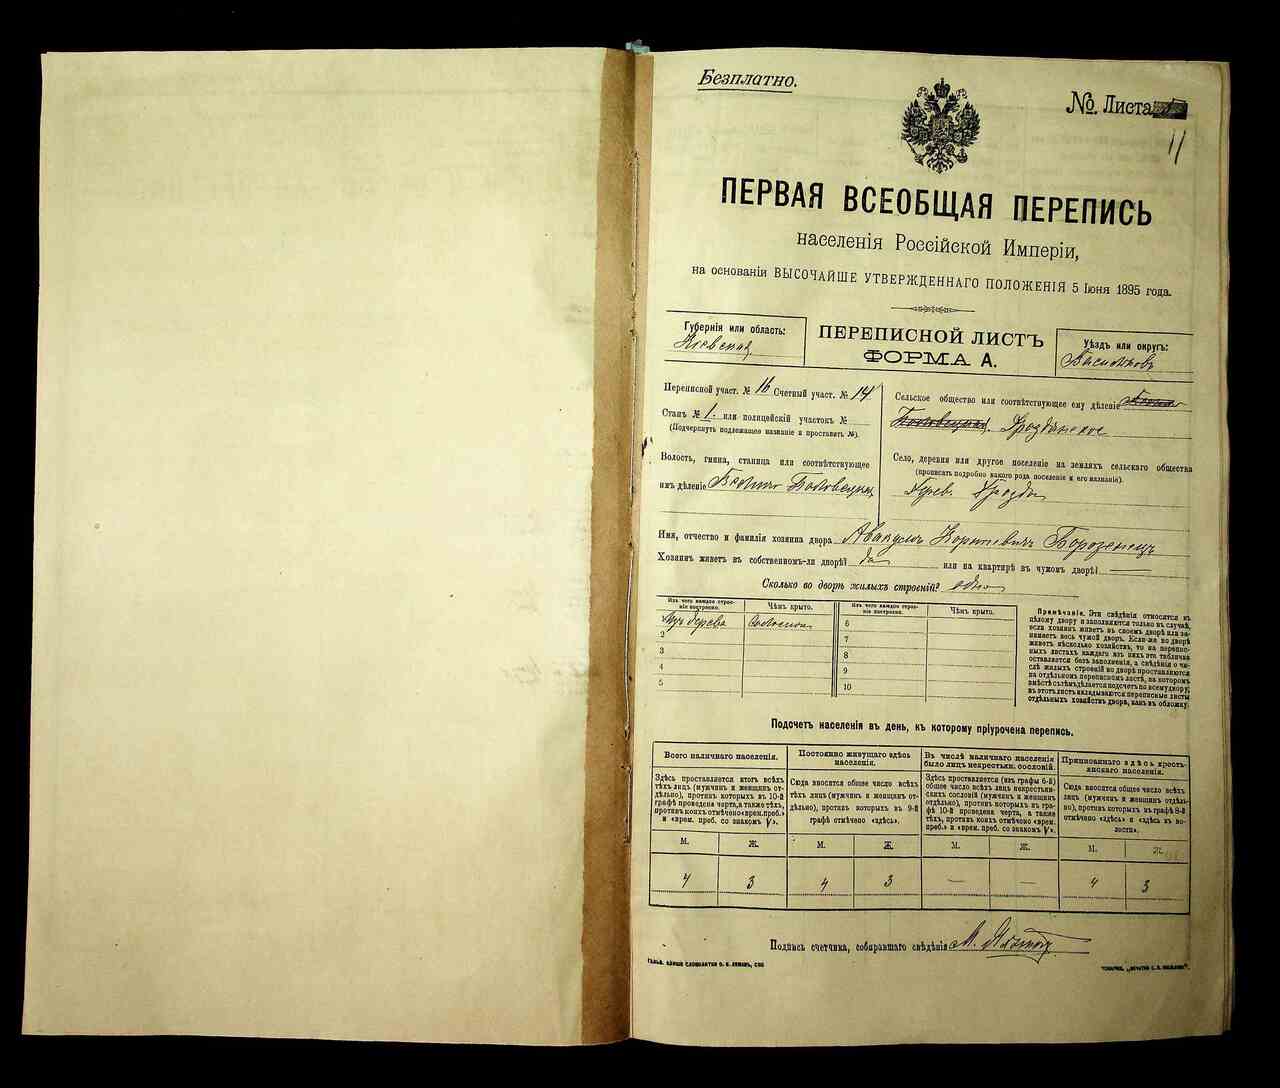 Безплатно.
№ Листа
11
ПЕРВАЯ ВСЕОБЩАЯ ПЕРЕПИСЬ
населенія Россійской Имперіи,
на основаніи ВЫСОЧАЙШЕ УТВЕРЖДЕННАГО ПОЛОЖЕНІЯ 5 Іюня 1895 года.
Губернія или область:
Кіевская
ПЕРЕПИСНОЙ ЛИСТЪ
ФОРМА А.
Уѣздъ или округъ:
Васильковъ
Переписной участ. № 16 Счетный участ. № 14
Станъ № 1. или полицейскій участокъ №
(Подчеркнуть подлежащее названіе и проставить №).
Волость, гмина, станица или соотвѣтствующее
имъ дѣленіе
Сельское общество или соотвѣтствующее ему дѣленіе
Дроздянское
Село, деревня или другое поселеніе на земляхъ сельскаго общества
(прописать подробно какого рода поселеніе и его названіе).
Дрозды
Имя, отчество и фамилія хозяина двора Авакумъ
Хозяинъ живетъ въ собственномъ-ли дворѣ? да или на квартирѣ въ чужомъ дворѣ? —
Сколько во дворѣ жилыхъ строеній? одно
Изъ чего каждое строеніе построено. Чѣмъ крыто. Изъ чего каждое строеніе построено. Чѣмъ крыто.
Изъ дерева Соломою 6
2 7
3 8
4 9
5 10
Примѣчаніе. Эти свѣдѣнія относятся къ
цѣлому двору и заполняются только въ случаѣ,
если хозяинъ живетъ въ своемъ дворѣ или за-
нимаетъ весь чужой дворъ. Если-же во дворѣ
живетъ нѣсколько хозяйствъ, то на перепис-
ныхъ листахъ каждаго изъ нихъ эта табличка
оставляется безъ заполненія, а свѣдѣнія о чи-
слѣ жилыхъ строеній во дворѣ проставляются
на отдѣльномъ переписномъ листѣ, на которомъ
вмѣстѣ съ тѣмъ дѣлается подсчетъ по всему двору;
въ этотъ листъ вкладываются переписные листы
отдѣльныхъ хозяйствъ двора, какъ въ обложку.
Подсчетъ населенія въ день, къ которому пріурочена перепись.
Всего наличнаго населенія.
Здѣсь проставляется итогъ всѣхъ
тѣхъ лицъ (мужчинъ и женщинъ от-
дѣльно), противъ которыхъ въ 10-й
графѣ проведена черта, а также тѣхъ,
противъ коихъ отмѣчено «врем. преб.»
и «врем. преб. со знакомъ V».
Постоянно живущаго здѣсь
населенія.
Сюда вносится общее число всѣхъ
тѣхъ лицъ (мужчинъ и женщинъ от-
дѣльно), противъ которыхъ въ 9-й
графѣ отмѣчено «здѣсь».
Въ числѣ наличнаго населенія
было лицъ некрестьян. сословій.
Здѣсь проставляется (изъ графы 6-й)
общее число всѣхъ лицъ некрестьян-
скихъ сословій (мужчинъ и женщинъ
отдѣльно), противъ которыхъ въ гра-
фѣ 10-й проведена черта, а также
тѣхъ, противъ коихъ отмѣчено «врем.
преб.» и «врем. преб. со знакомъ V».
Приписаннаго здѣсь кресть-
янскаго населенія.
Сюда вносится общее число всѣхъ
лицъ (мужчинъ и женщинъ отдѣль-
но), противъ которыхъ въ графѣ 8-й
отмѣчено «здѣсь» и «здѣсь въ во-
лости».
М. Ж. М. Ж. М. Ж. М. Ж.
4 3 4 3 — — 4 3
Подпись счетчика, собиравшаго свѣдѣнія М.